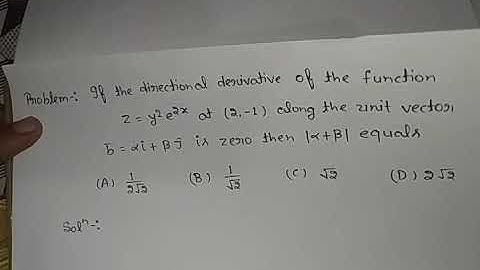 Problem-: If the directional derivative of the function
z = y²e²ˣ at (2,-1) along the unit vector
b̄ = αî + βĵ is zero then |α+β| equals
(A) 1/2√2 (B) 1/√2 (C) √2 (D) 2√2
Solⁿ-: